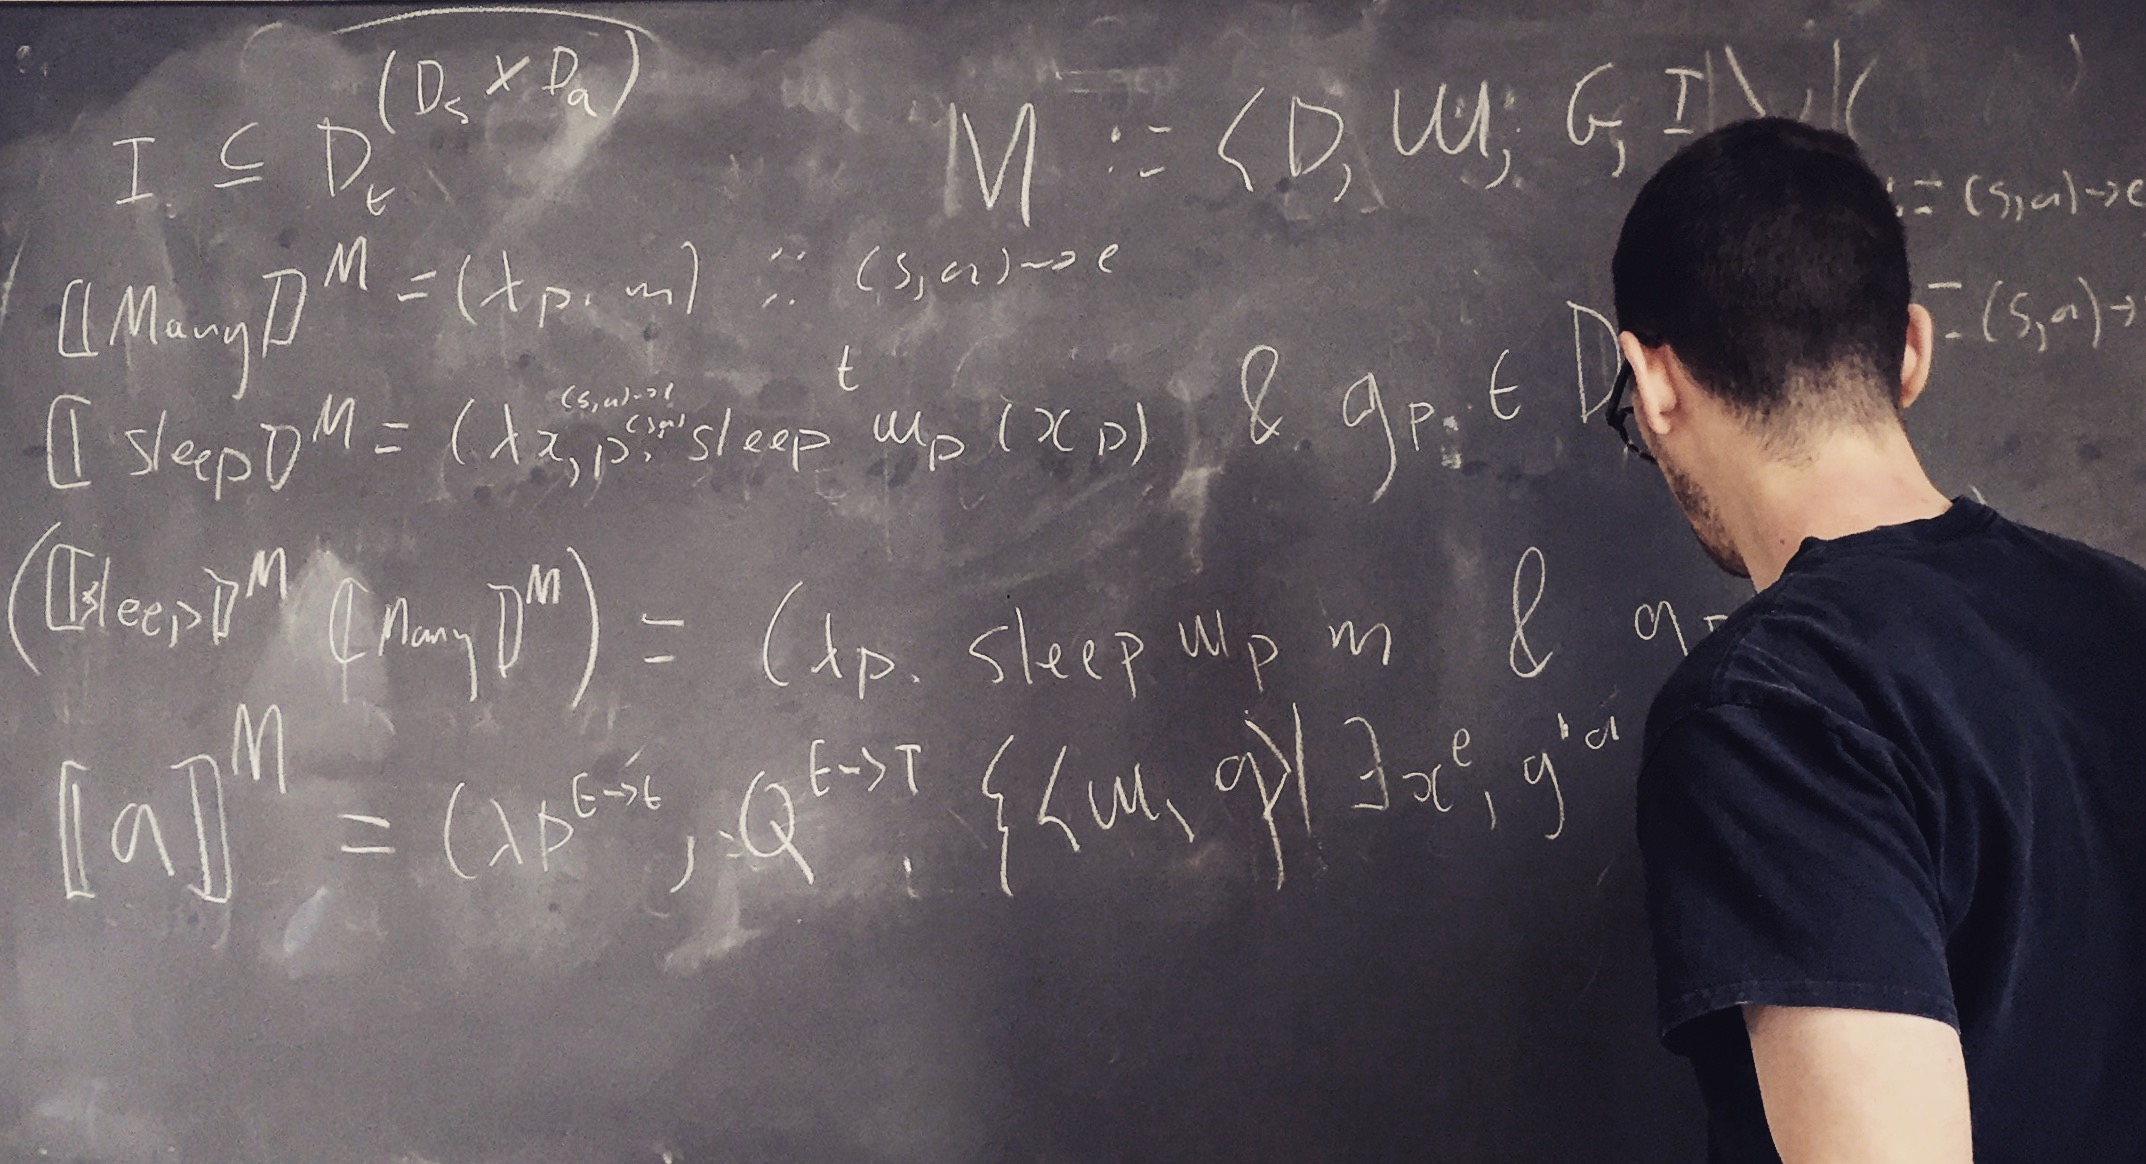 I ⊆ D_t^(D_s × D_a)
M ::= ⟨D, W, G, I
:= (s,a)→e
⟦Many⟧^M = (λp. m) :: (s,a)→e
= (s,a)→
⟦sleep⟧^M = (λx^(s,a)→e, p^(s,a). sleep^t w_p (x p) & g_p ∈ D
(⟦sleep⟧^M ⟦Many⟧^M) = (λp. sleep w_p m & g_p
⟦a⟧^M = (λP^E→t, Q^E→T. {⟨w, g⟩| ∃x^e, g'^a